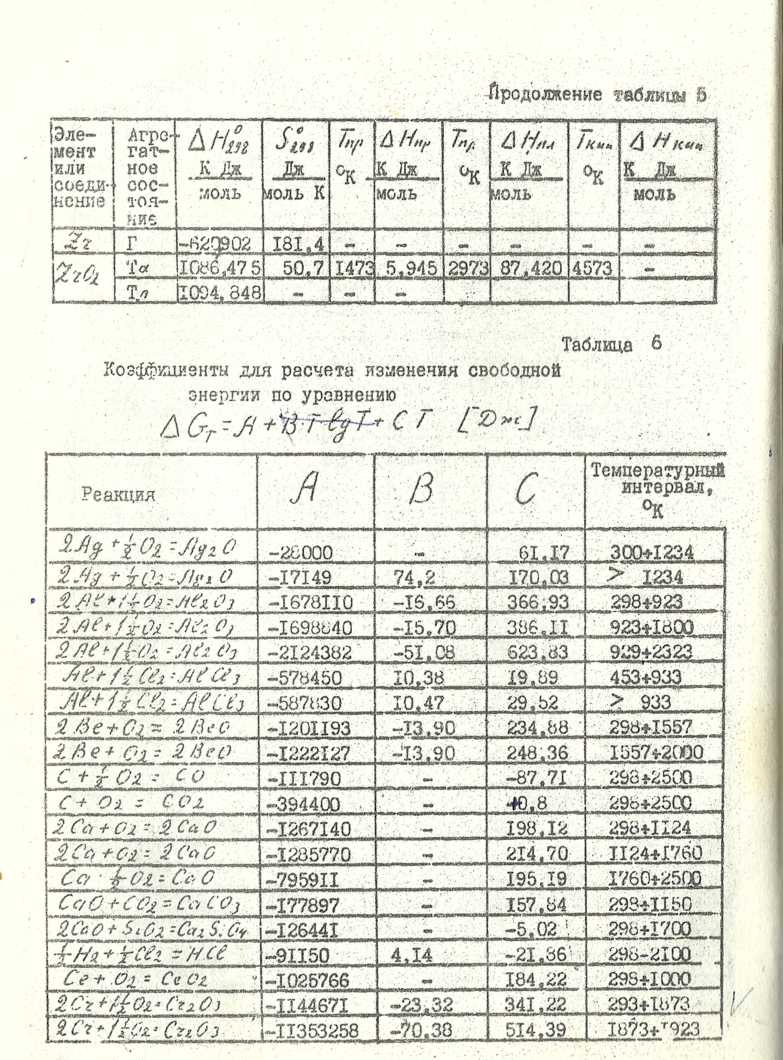 Продолжение таблицы 5
Эле-мент или соеди-нение | Агре-гат-ное сос-тоя-ние | Δ H⁰₂₉₈ К Дж/моль | S⁰₂₉₈ Дж/моль К | Tпр °К | Δ Hпр К Дж/моль | Tпл °К | Δ Hпл К Дж/моль | Tкип °К | Δ Hкип К Дж/моль
Zr | Г | -620902 | 181,4 | - | - | - | - | - | -
ZrO₂ | Тα | 1086,475 | 50,7 | 1473 | 5,945 | 2973 | 87,420 | 4573 | -
Тл | 1094,848 | - | - | -
Таблица 6
Коэффициенты для расчета изменения свободной
энергии по уравнению
Δ G_T = A + B T lg T + C T [Дж]
Реакция | A | B | C | Температурный интервал, °К
2Ag + ½O₂ = Ag₂O | -28000 | - | 61,17 | 300÷1234
2Ag + ½O₂ = Ag₂O | -17149 | 74,2 | 170,03 | > 1234
2Al + 1½O₂ = Al₂O₃ | -1678110 | -16,66 | 366,93 | 298÷923
2Al + 1½O₂ = Al₂O₃ | -1698840 | -15,70 | 386,11 | 923÷1800
2Al + 1½O₂ = Al₂O₃ | -2124382 | -51,08 | 623,83 | 929÷2323
Al + 1½Cl₂ = AlCl₃ | -578450 | 10,38 | 19,89 | 453÷933
Al + 1½Cl₂ = AlCl₃ | -587830 | 10,47 | 29,52 | > 933
2Be + O₂ = 2BeO | -1201193 | -13,90 | 234,88 | 298÷1557
2Be + O₂ = 2BeO | -1222127 | -13,90 | 248,36 | 1557÷2000
C + ½O₂ = CO | -111790 | - | -87,71 | 298÷2500
C + O₂ = CO₂ | -394400 | - | 0,8 | 298÷2500
2Ca + O₂ = 2CaO | -1267140 | - | 198,12 | 298÷1124
2Ca + O₂ = 2CaO | -1285770 | - | 214,70 | 1124÷1760
Ca · ½O₂ = CaO | -795911 | - | 195,19 | 1760÷2500
CaO + CO₂ = CaCO₃ | -177897 | - | 157,84 | 298÷1150
2CaO + SiO₂ = Ca₂SiO₄ | -126441 | - | -5,02 | 298÷1700
½H₂ + ½Cl₂ = HCl | -91150 | 4,14 | -21,86 | 298-2100
Ce + O₂ = CeO₂ | -1025766 | - | 184,22 | 298÷1000
2Cr + 1½O₂ = Cr₂O₃ | -1144671 | -23,32 | 341,22 | 293÷1873
2Cr + 1½O₂ = Cr₂O₃ | -11353258 | -70,38 | 514,39 | 1873÷1923